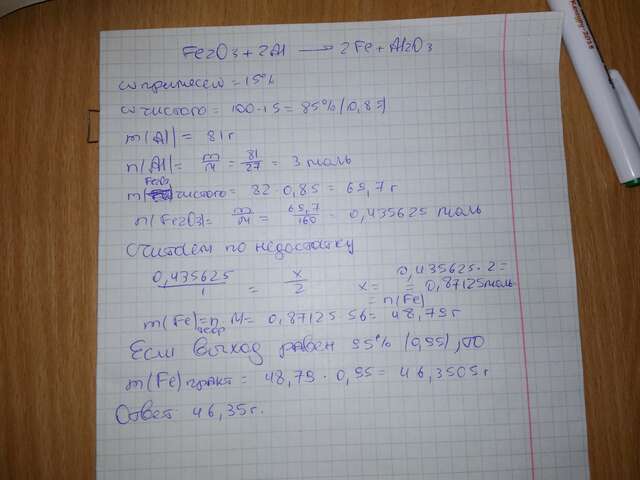 Fe2O3 + 2Al → 2Fe + Al2O3
ω примесей = 15%
ω чистого = 100-15 = 85% (0,85)
m(Al) = 81 г
n(Al) = m/M = 81/27 = 3 моль
m(Fe2O3) чистого = 82 · 0,85 = 69,7 г
n(Fe2O3) = m/M = 69,7/160 = 0,435625 моль
Считаем по недостатку
0,435625/1 = x/2 x = 0,435625 · 2 =
= 0,87125 моль
= n(Fe)
m(Fe) теор = n · M = 0,87125 · 56 = 48,79 г
Если выход равен 95% (0,95), то
m(Fe) практ = 48,79 · 0,95 = 46,3505 г
Ответ: 46,35 г.